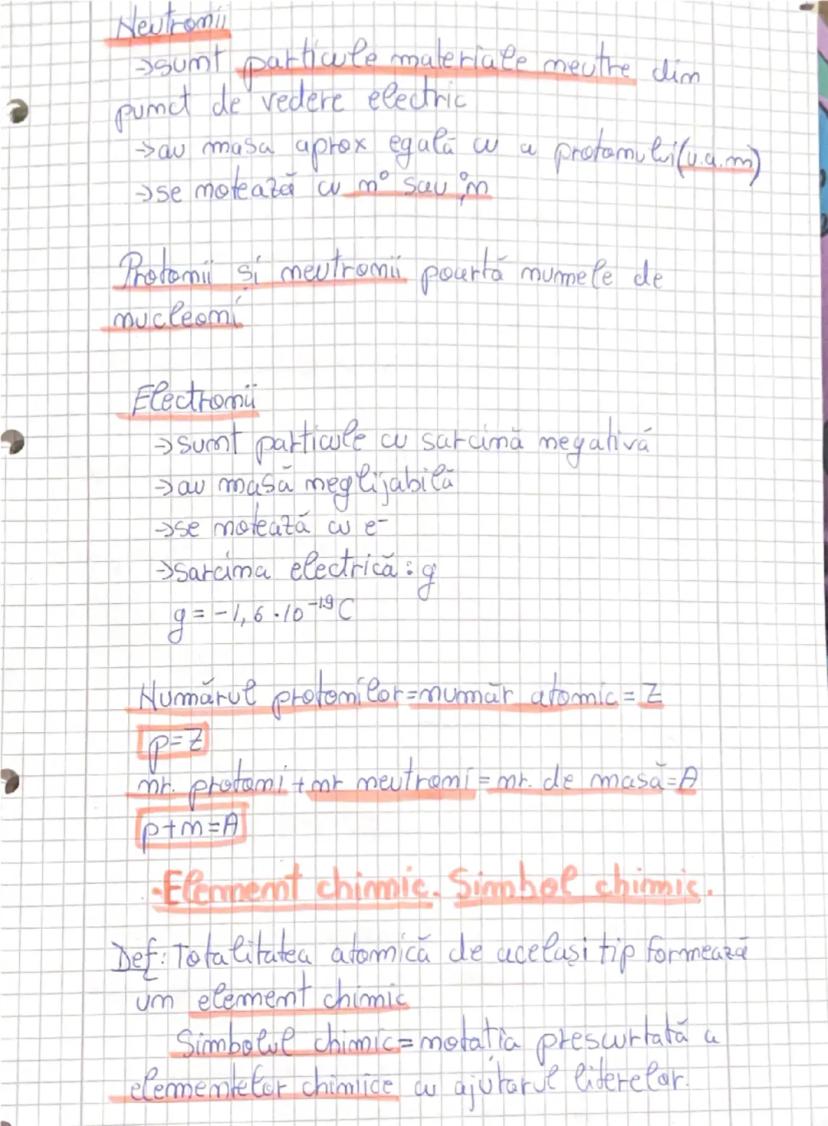 Neutronii
→sunt particule materiale neutre din
punct de vedere electric
→au masa aprox egală cu a protonului (u.a.m)
→se notează cu n⁰ sau ⁰n
Protonii și neutronii poartă numele de
nucleoni
Electronii
→sunt particule cu sarcină negativă
→au masă neglijabilă
→se notează cu e⁻
→sarcina electrică: q
q = -1,6 · 10⁻¹⁹ C
Numărul protonilor = număr atomic = Z
p=Z
nr. protoni + nr neutroni = nr. de masă = A
p+n=A
·Element chimic. Simbol chimic.
Def: Totalitatea atomică de același tip formează
un element chimic
Simbolul chimic = notația prescurtată a
elementelor chimice cu ajutorul literelor.